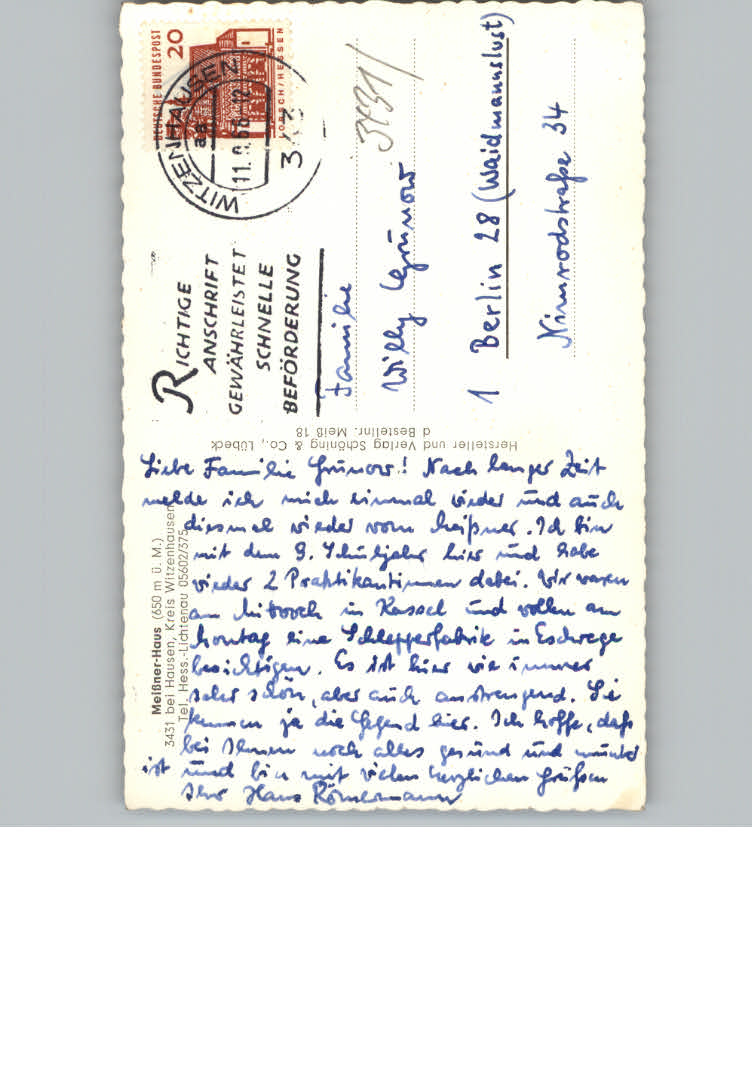 DEUTSCHE BUNDESPOST
20
LORSCH/HESSEN
WITZENHAUSEN
aa
11.9.66-12
343
RICHTIGE
ANSCHRIFT
GEWÄHRLEISTET
SCHNELLE
BEFÖRDERUNG
3431/
Familie
Willy Grunow
1 Berlin 28 (Waidmannslust)
Nimrodstraße 34
Hersteller und Verlag Schöning & Co., Lübeck
d Bestellnr. Meiß 18
Meißner-Haus (650 m ü. M.)
3431 bei Hausen, Kreis Witzenhausen
Tel. Hess.-Lichtenau 05602/375
Liebe Familie Grunow! Nach langer Zeit
melde ich mich einmal wieder und auch
diesmal wieder vom Meißner. Ich bin
mit dem 9. Schuljahr hier und habe
wieder 2 Praktikantinnen dabei. Wir waren
am Mittwoch in Kassel und wollen am
Montag eine Schlepperfabrik in Eschwege
besichtigen. Es ist hier wie immer
sehr schön, aber auch anstrengend. Sie
kennen ja die Gegend hier. Ich hoffe, daß
bei Ihnen noch alles gesund und munter
ist und bin mit vielen herzlichen Grüßen
Ihr Hans Römermann